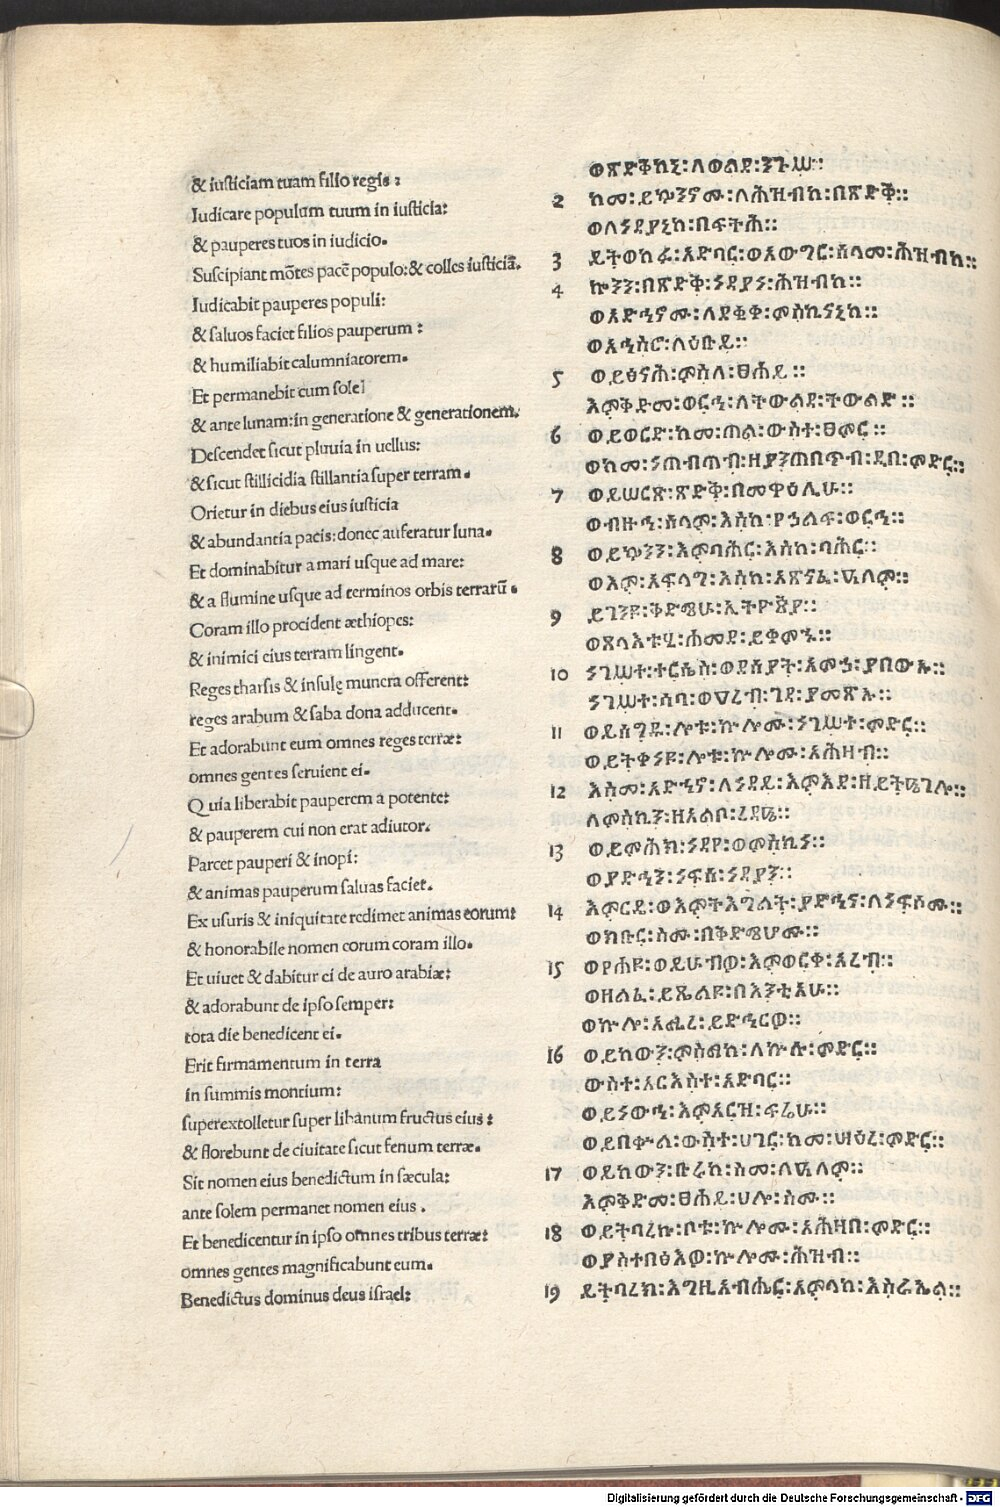 & iuſticiam tuam filio regis:
Iudicare populum tuum in iuſticia:
& pauperes tuos in iudicio.
Suſcipiant mōtes pacē populo: & colles iuſticiā.
Iudicabit pauperes populi:
& ſaluos faciet filios pauperum:
& humiliabit calumniatorem.
Et permanebit cum ſole
& ante lunam: in generatione & generationem.
Deſcendet ſicut pluuia in uellus:
& ſicut ſtillicidia ſtillantia ſuper terram.
Orietur in diebus eius iuſticia
& abundantia pacis: donec auferatur luna.
Et dominabitur a mari uſque ad mare:
& a flumine uſque ad terminos orbis terrarū.
Coram illo procident æthiopes:
& inimici eius terram lingent.
Reges tharſis & inſulę munera offerent:
reges arabum & ſaba dona adducent.
Et adorabunt eum omnes reges terræ:
omnes gentes ſeruient ei.
Quia liberabit pauperem a potente:
& pauperem cui non erat adiutor.
Parcet pauperi & inopi:
& animas pauperum ſaluas faciet.
Ex uſuris & iniquitate redimet animas eorum:
& honorabile nomen eorum coram illo.
Et uiuet & dabitur ei de auro arabiæ:
& adorabunt de ipſo ſemper:
tota die benedicent ei.
Erit firmamentum in terra
in ſummis montium:
ſuperextolletur ſuper libanum fructus eius:
& florebunt de ciuitate ſicut fenum terræ.
Sit nomen eius benedictum in ſæcula:
ante ſolem permanet nomen eius.
Et benedicentur in ipſo omnes tribus terræ:
omnes gentes magnificabunt eum.
Benedictus dominus deus iſrael:
ወጽድቅከኒ፡ለወልደ፡ንጉሥ፡
2 ከመ፡ይኰንኖሙ፡ለሕዝብከ፡በጽድቅ።
ወለነዳያኒከ፡በፍትሕ።
3 ይትወከፉ፡አድባር፡ወአውግር፡ሰላመ፡ሕዝብከ።
4 ኰንን፡በጽድቅ፡ነዳያነ፡ሕዝብከ።
ወአድኅኖሙ፡ለደቂቀ፡ምስኪናኒከ።
ወአኅስሮ፡ለዕቡይ።
5 ወይፅናሕ፡ምስለ፡ፀሐይ።
እምቅድመ፡ወርኅ፡ለትውልደ፡ትውልድ።
6 ወይወርድ፡ከመ፡ጠል፡ውስተ፡ፀምር።
ወከመ፡ነጠብጣብ፡ዘያንጠበጥብ፡ዲበ፡ምድር።
7 ወይሠርጽ፡ጽድቅ፡በመዋዕሊሁ።
ወብዙኅ፡ሰላም፡እስከ፡የኃልፍ፡ወርኅ።
8 ወይኰንን፡እምባሕር፡እስከ፡ባሕር።
ወእም፡አፍላግ፡እስከ፡አጽናፈ፡ዓለም።
9 ይገንዩ፡ቅድሜሁ፡ኢትዮጵያ።
ወጸላእቱሂ፡ሐመደ፡ይቀምኁ።
10 ነገሥተ፡ተርሴስ፡ወደሰያት፡አምኃ፡ያበውኡ።
ነገሥተ፡ሳባ፡ወዐረብ፡ጋዳ፡ያመጽኡ።
11 ወይሰግዱ፡ሎቱ፡ኵሎሙ፡ነገሥተ፡ምድር።
ወይትቀነዩ፡ሎቱ፡ኵሎሙ፡አሕዛብ።
12 እስመ፡አድኅኖ፡ለነዳይ፡እምእደ፡ዘይትዔገሎ።
ለምስኪን፡ዘአልቦ፡ረዳኤ።
13 ወይምሕክ፡ነዳየ፡ወምስኪነ።
ወያድኅን፡ነፍሰ፡ነዳያን።
14 እምርዴ፡ወእምትእግልት፡ያድኅና፡ለነፍሶሙ።
ወክቡር፡ስሙ፡በቅድሜሆሙ።
15 ወየሐዩ፡ወይሁብዎ፡እምወርቀ፡አረብ።
ወዘልፈ፡ይጼልዩ፡በእንቲአሁ።
ወኵሎ፡አሚረ፡ይድኅርዎ።
16 ወይከውን፡ምስማከ፡ለኵሉ፡ምድር።
ውስተ፡አርእስተ፡አድባር።
ወይነውኅ፡እምአርዝ፡ፍሬሁ።
ወይበቍል፡ውስተ፡ሀገር፡ከመ፡ሣዕረ፡ምድር።
17 ወይከውን፡ቡሩከ፡ስመ፡ለዓለም።
እምቅድመ፡ፀሐይ፡ሀሎ፡ስሙ።
18 ወይትባረኩ፡ቦቱ፡ኵሎሙ፡አሕዛበ፡ምድር።
ወያስተበፅዕዎ፡ኵሎሙ፡ሕዝብ።
19 ይትባረክ፡እግዚአብሔር፡አምላከ፡እስራኤል።
Digitalisierung gefördert durch die Deutsche Forschungsgemeinschaft - DFG